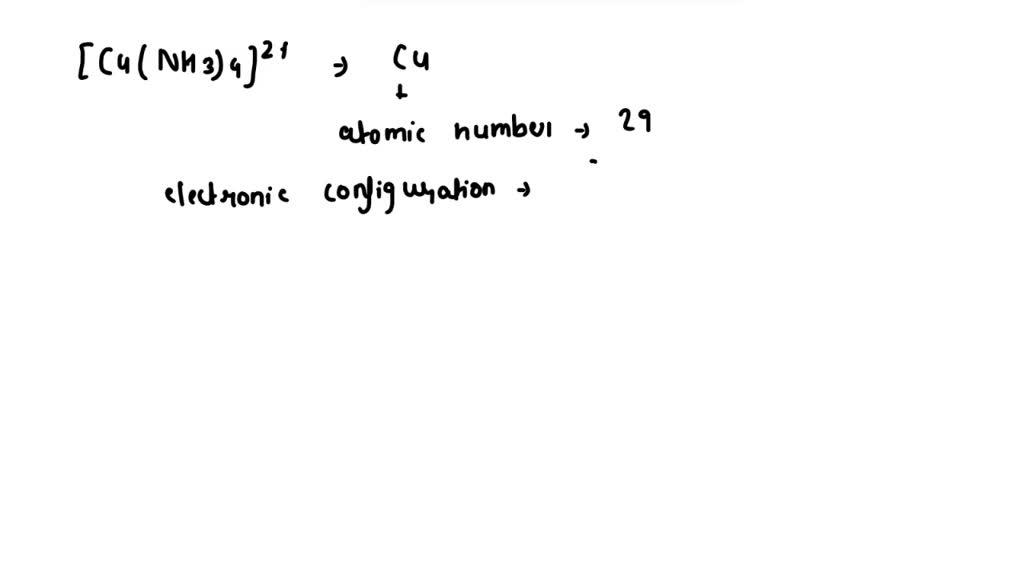 [Cu(NH3)4]2+ → Cu
↓
atomic number → 29
electronic configuration →